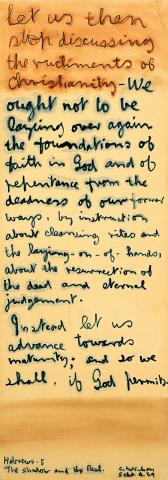 let us then
stop discussing
the rudiments of
Christianity – We
ought not to be
laying over again
the foundations of
faith in God and of
repentance from the
deadness of our former
ways, by instruction
about cleansing rites and
the laying-on-of-hands,
about the resurrection of
the dead and eternal
judgement.
Instead let us
advance towards
maturity; and so we
shall, if God permits.
Hebrews. 5
The shadow and the Real.